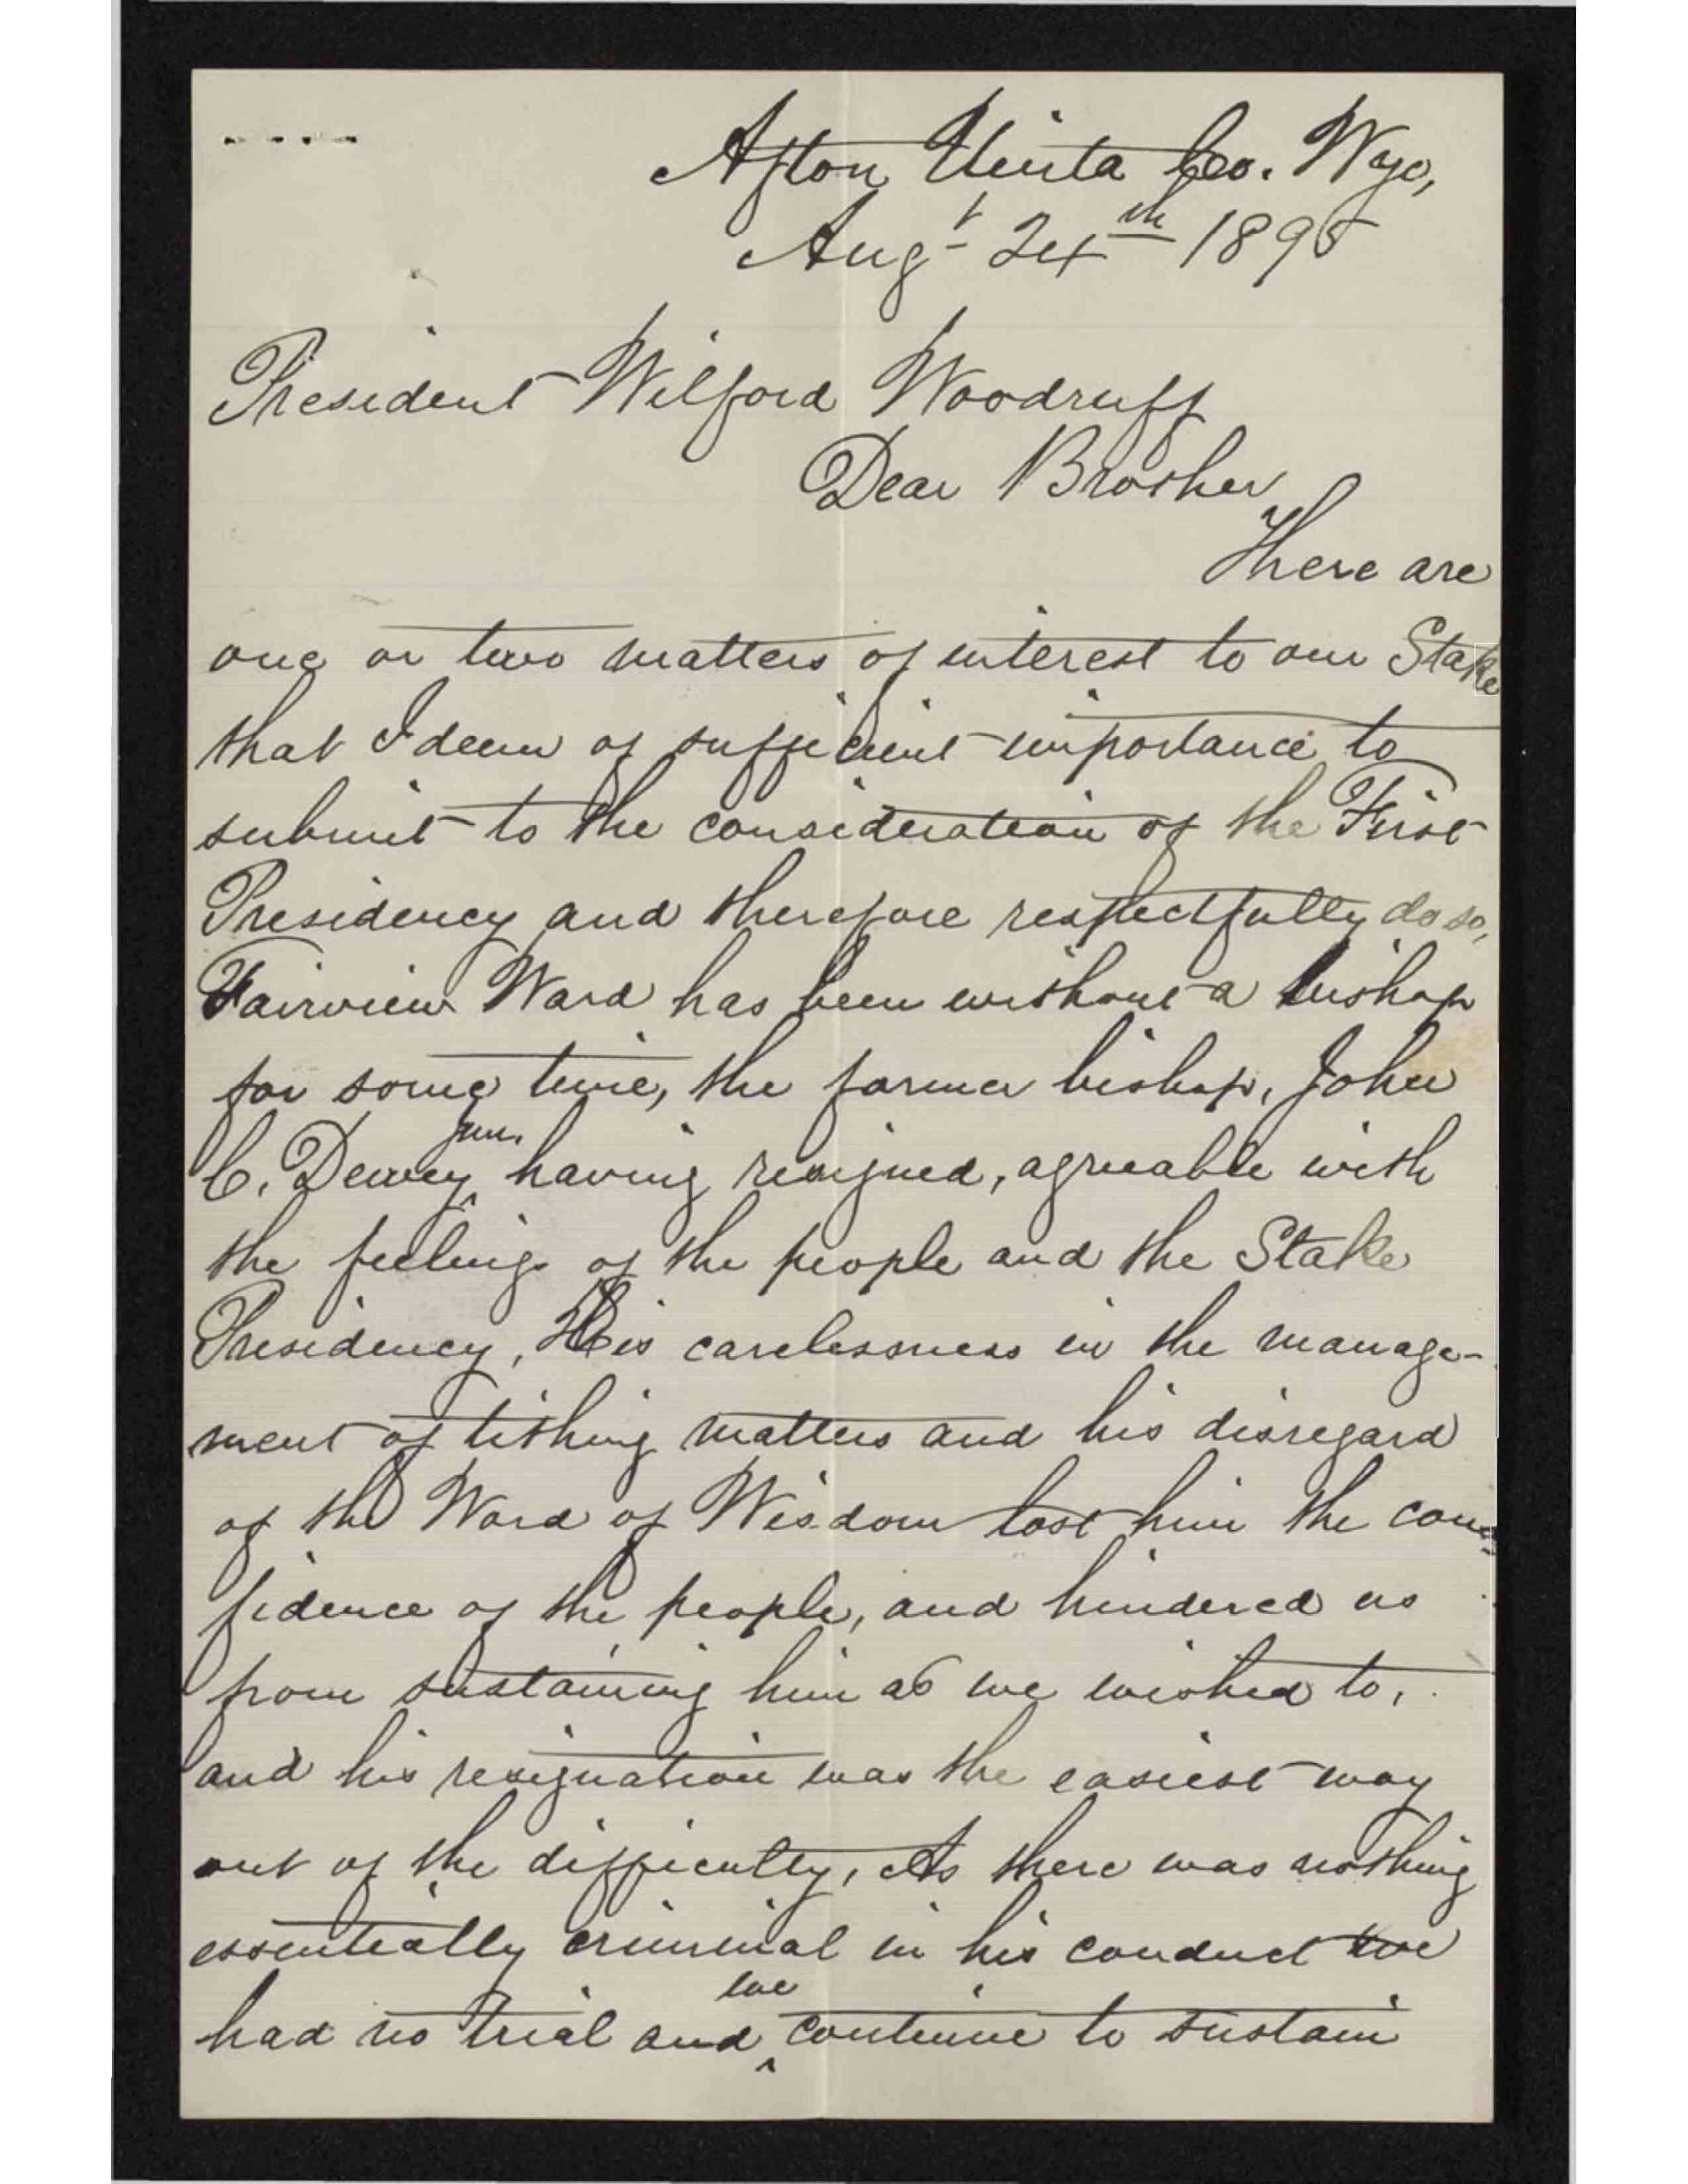 Afton Uinta Co. Wyo,
Augt 24th 1895
President Wilford Woodruff
Dear Brother
There are
one or two matters of interest to our Stake
that I deem of sufficient importance to
submit to the consideration of the First
Presidency and therefore respectfully do so,
Fairview Ward has been without a bishop
for some time, the former bishop, John
C. Dewey jun. having resigned, agreeable with
the feelings of the people and the Stake
Presidency, His carelessness in the manage-
ment of tithing matters and his disregard
of the Word of Wisdom lost him the con-
fidence of the people, and hindered us
from sustaining him as we wished to,
and his resignation was the easiest way
out of the difficulty, As there was nothing
essentially criminal in his conduct we
had no trial and we continue to sustain